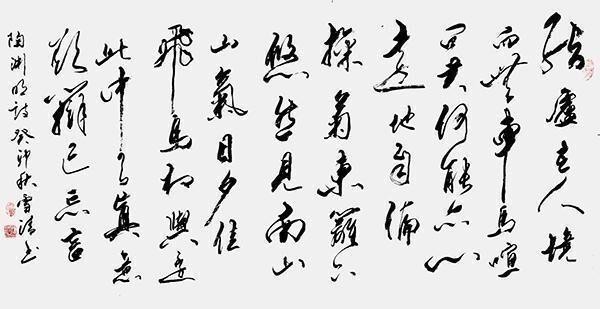 結廬在人境
而無車馬喧
問君何能尔心
遠地自偏
採菊東籬下
悠然見南山
山氣日夕佳
飛鳥相與還
此中有真意
欲辯已忘言
陶渊明詩 癸卯秋雪书